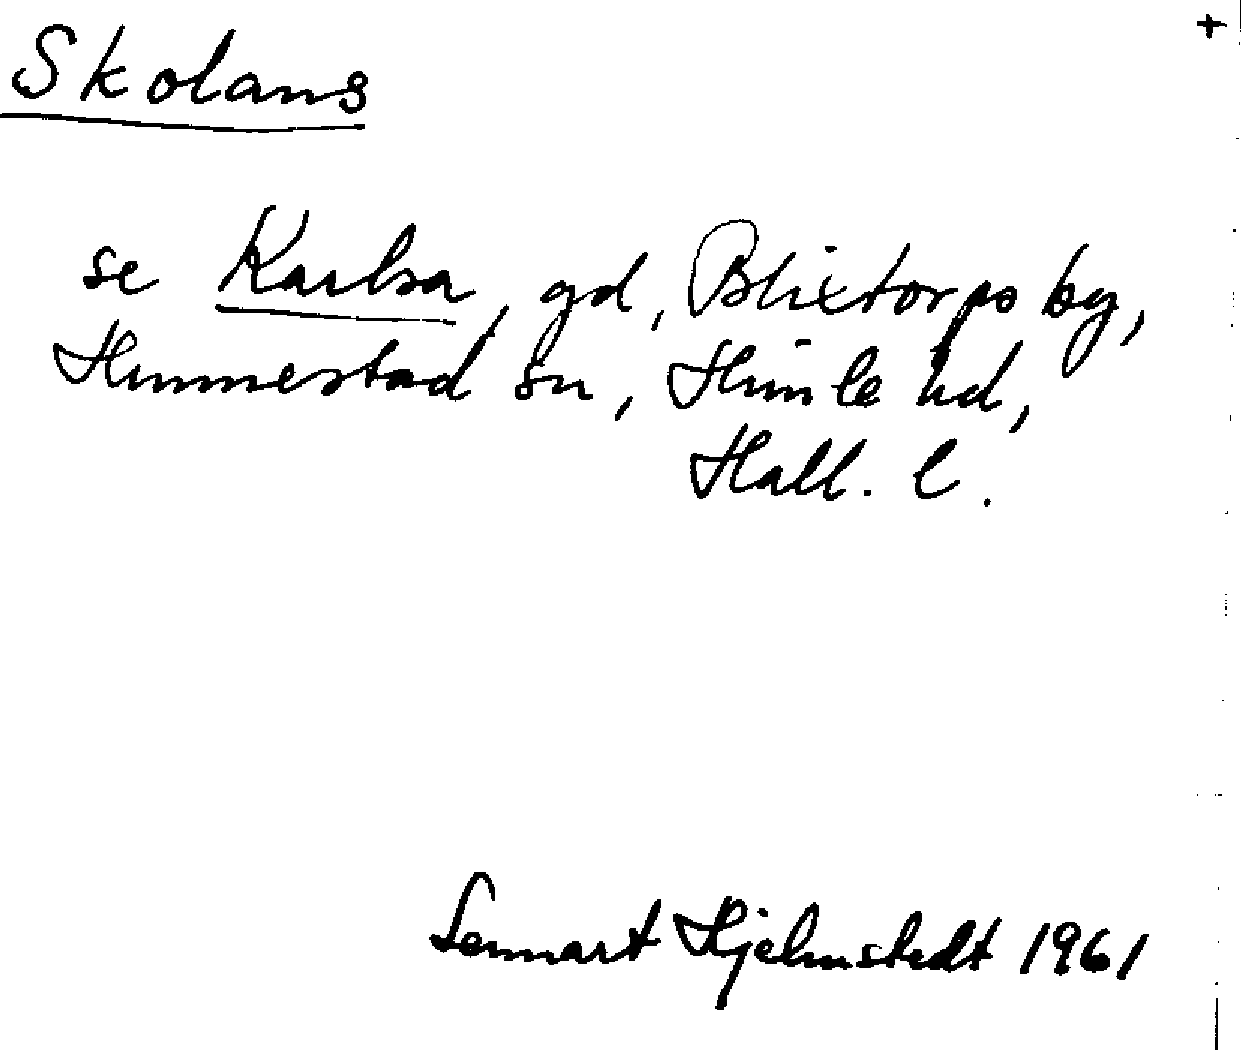 +
Skolans
se Karlsa, gd, Blixtorps by,
Hunnestad sn, Himle hd,
Hall. l.
Lennart Hjelmstedt 1961